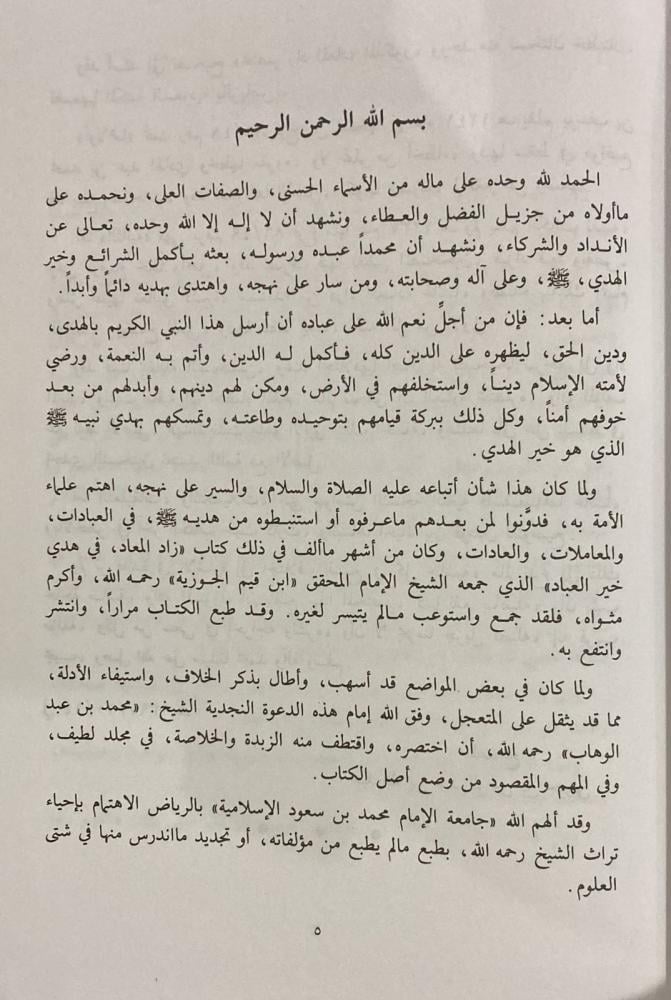 بسم الله الرحمن الرحيم
الحمد لله وحده على ماله من الأسماء الحسنى، والصفات العلى، ونحمده على
ماأولاه من جزيل الفضل والعطاء، ونشهد أن لا إله إلا الله وحده، تعالى عن
الأنداد والشركاء، ونشهد أن محمداً عبده ورسوله، بعثه بأكمل الشرائع وخير
الهدي، ﷺ، وعلى آله وصحابته، ومن سار على نهجه، واهتدى بهديه دائماً وأبداً.
أما بعد: فإن من أجلِّ نعم الله على عباده أن أرسل هذا النبي الكريم بالهدى،
ودين الحق، ليظهره على الدين كله، فأكمل له الدين، وأتم به النعمة، ورضي
لأمته الإسلام ديناً، واستخلفهم في الأرض، ومكن لهم دينهم، وأبدلهم من بعد
خوفهم أمناً، وكل ذلك ببركة قيامهم بتوحيده وطاعته، وتمسكهم بهدي نبيه ﷺ
الذي هو خير الهدي.
ولما كان هذا شأن أتباعه عليه الصلاة والسلام، والسير على نهجه، اهتم علماء
الأمة به، فدوَّنوا لمن بعدهم ماعرفوه أو استنبطوه من هديه ﷺ، في العبادات،
والمعاملات، والعادات، وكان من أشهر ماألف في ذلك كتاب «زاد المعاد، في هدي
خير العباد» الذي جمعه الشيخ الإمام المحقق «ابن قيم الجوزية» رحمه الله، وأكرم
مثواه، فلقد جمع واستوعب مالم يتيسر لغيره. وقد طبع الكتاب مراراً، وانتشر
وانتفع به.
ولما كان في بعض المواضع قد أسهب، وأطال بذكر الخلاف، واستيفاء الأدلة،
مما قد يثقل على المتعجل، وفق الله إمام هذه الدعوة النجدية الشيخ: «محمد بن عبد
الوهاب» رحمه الله، أن اختصره، واقتطف منه الزبدة والخلاصة، في مجلد لطيف،
وفي المهم والمقصود من وضع أصل الكتاب.
وقد ألهم الله «جامعة الإمام محمد بن سعود الإسلامية» بالرياض الاهتمام بإحياء
تراث الشيخ رحمه الله، بطبع مالم يطبع من مؤلفاته، أو تجديد مااندرس منها في شتى
العلوم.
٥